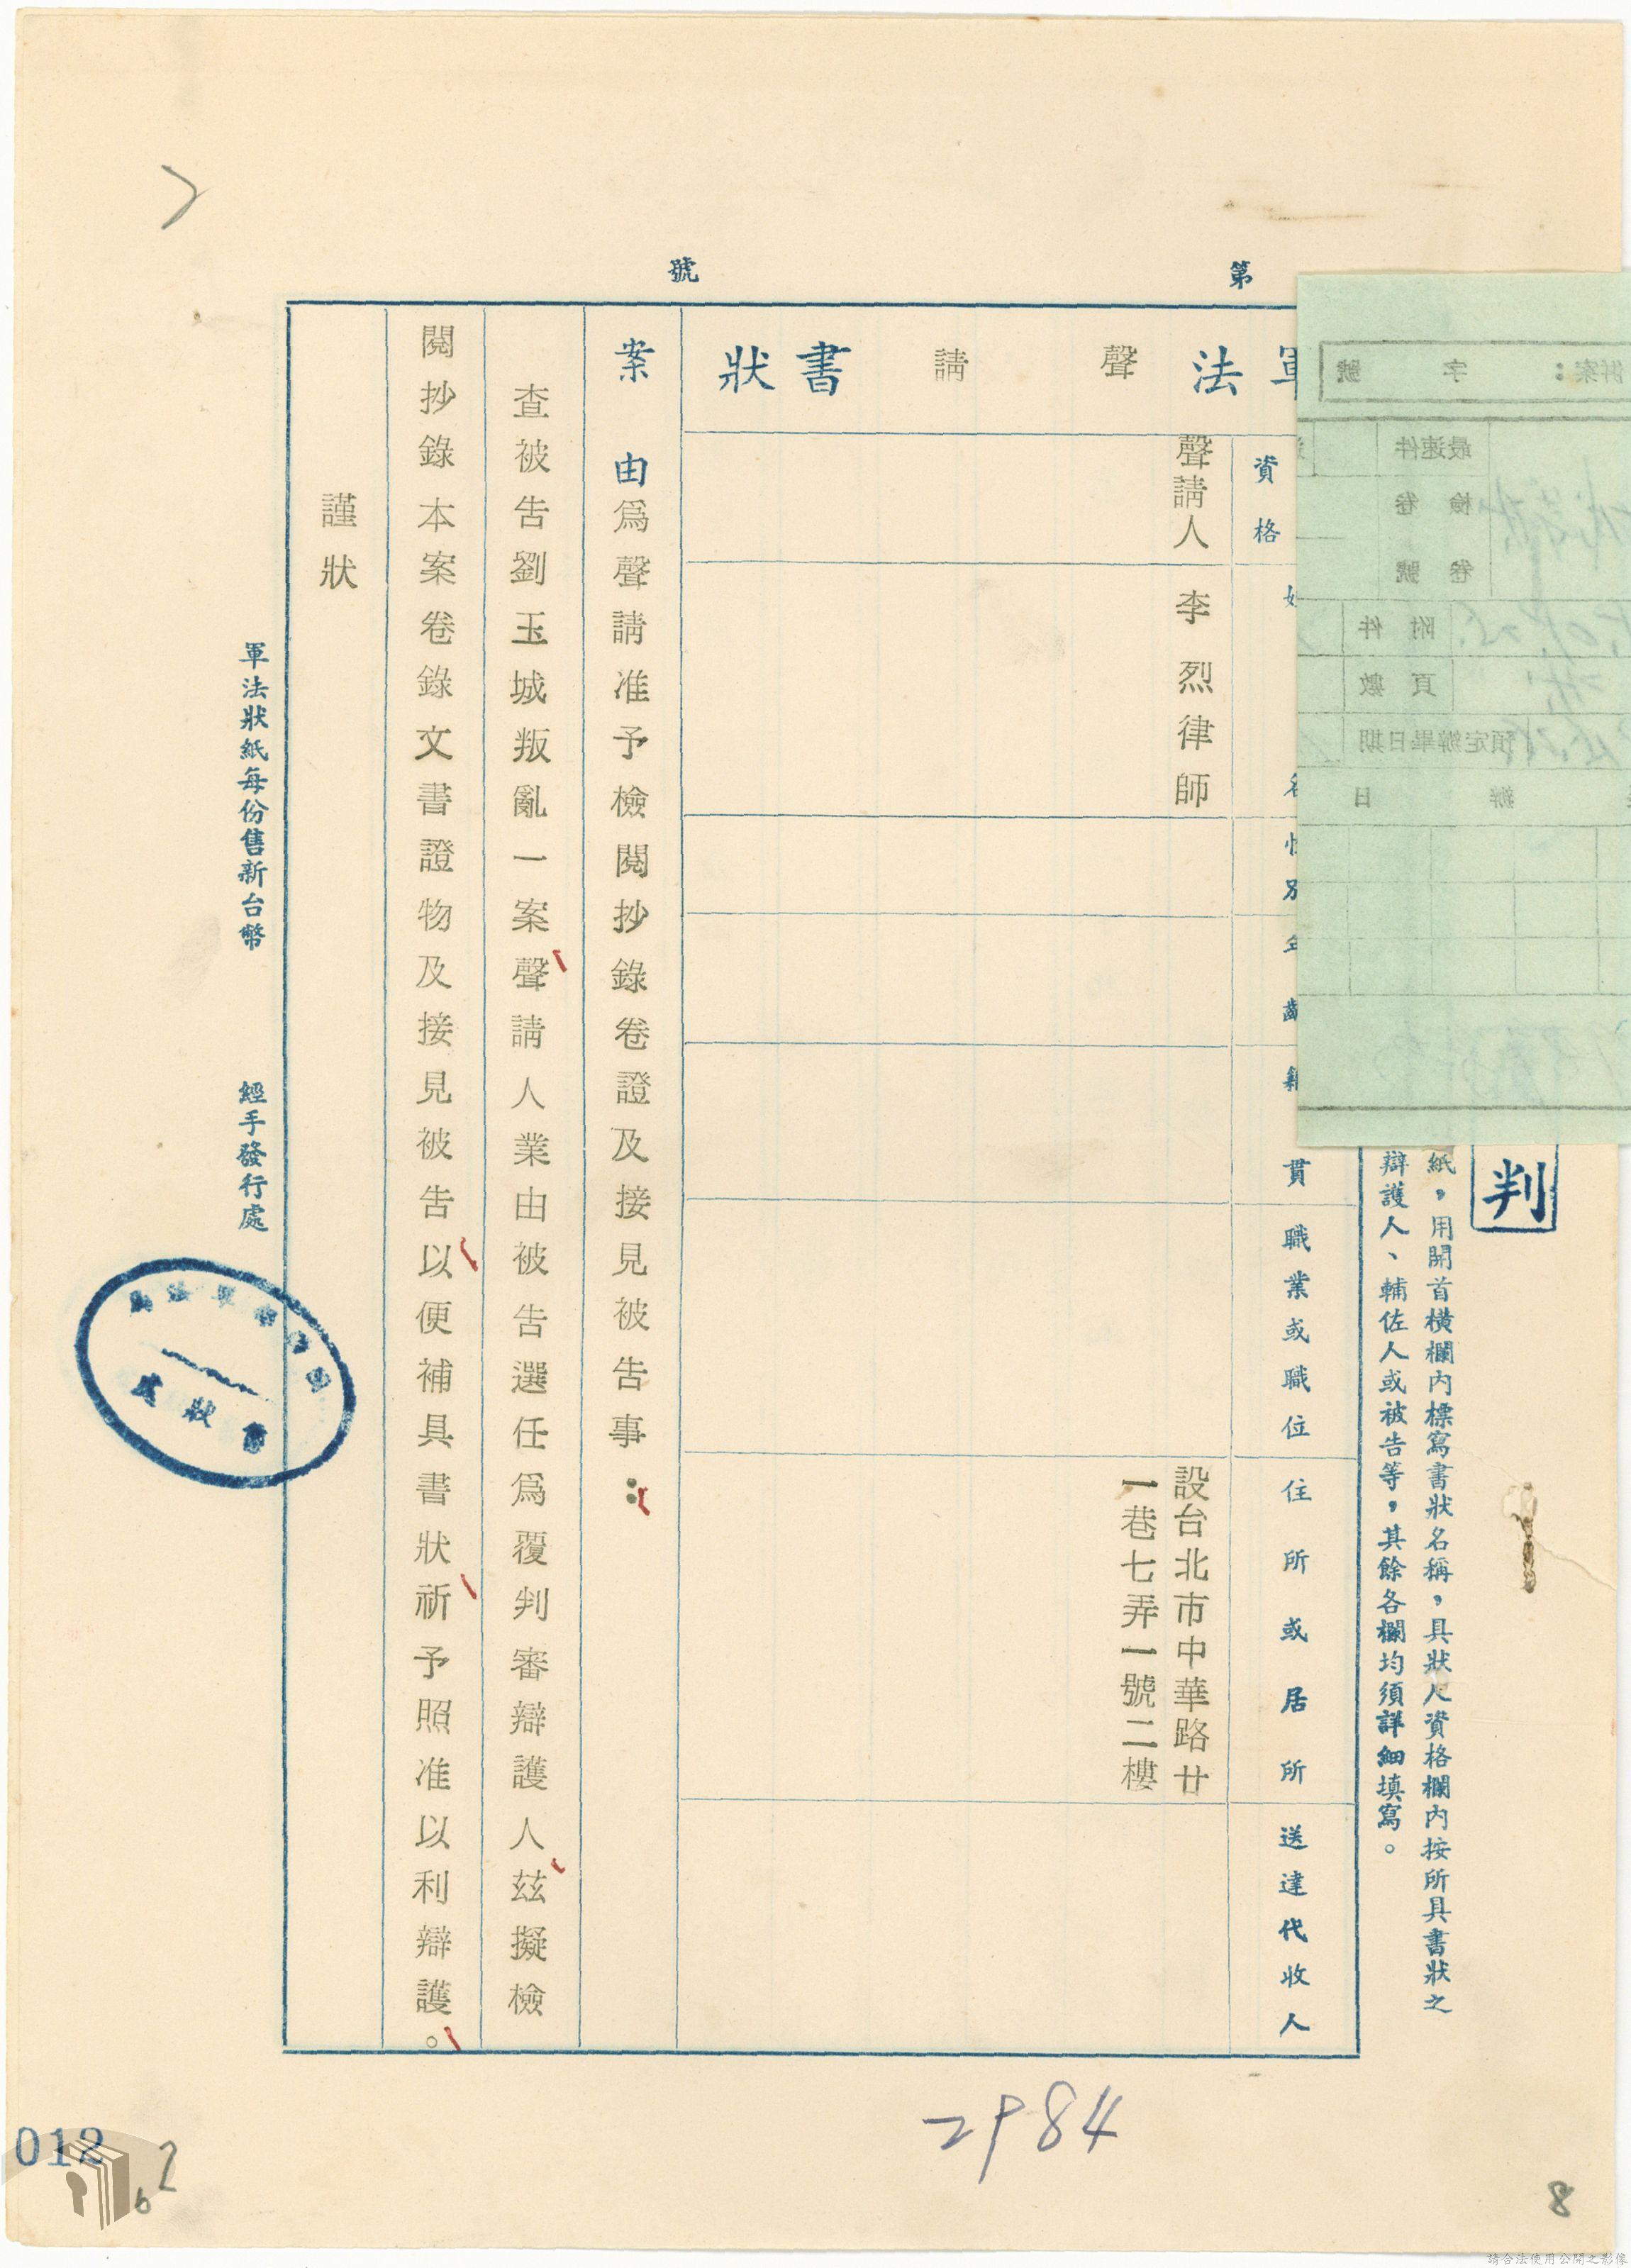 第
號
判
紙，用開首橫欄內標寫書狀名稱，具狀人資格欄內按所具書狀之
辯護人、輔佐人或被告等，其餘各欄均須詳細填寫。
軍法聲請書狀
資格
貫
職業或職位
住所或居所
送達代收人
聲請人
李烈律師
設台北市中華路廿
一巷七弄一號二樓
案由為聲請准予檢閱抄錄卷證及接見被告事：
查被告劉玉城叛亂一案聲請人業由被告選任為覆判審辯護人茲擬檢
閱抄錄本案卷錄文書證物及接見被告以便補具書狀祈予照准以利辯護。
謹狀
軍法狀紙每份售新台幣
經手發行處
併案：字號
最速件
檢卷
卷號
附件
頁數
預定辦畢日期
辦日
2984
012
62
8
請合法使用公開之影像